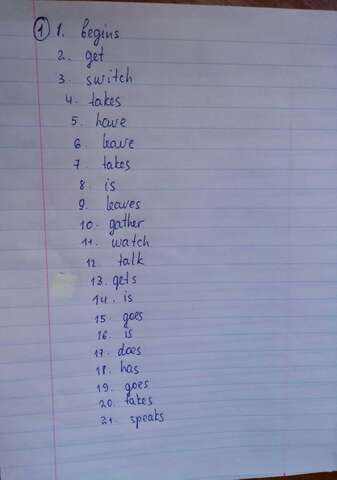 1 1. begins
2. get
3. switch
4. takes
5. have
6. leave
7. takes
8. is
9. leaves
10. gather
11. watch
12. talk
13. gets
14. is
15. goes
16. is
17. does
18. has
19. goes
20. takes
21. speaks